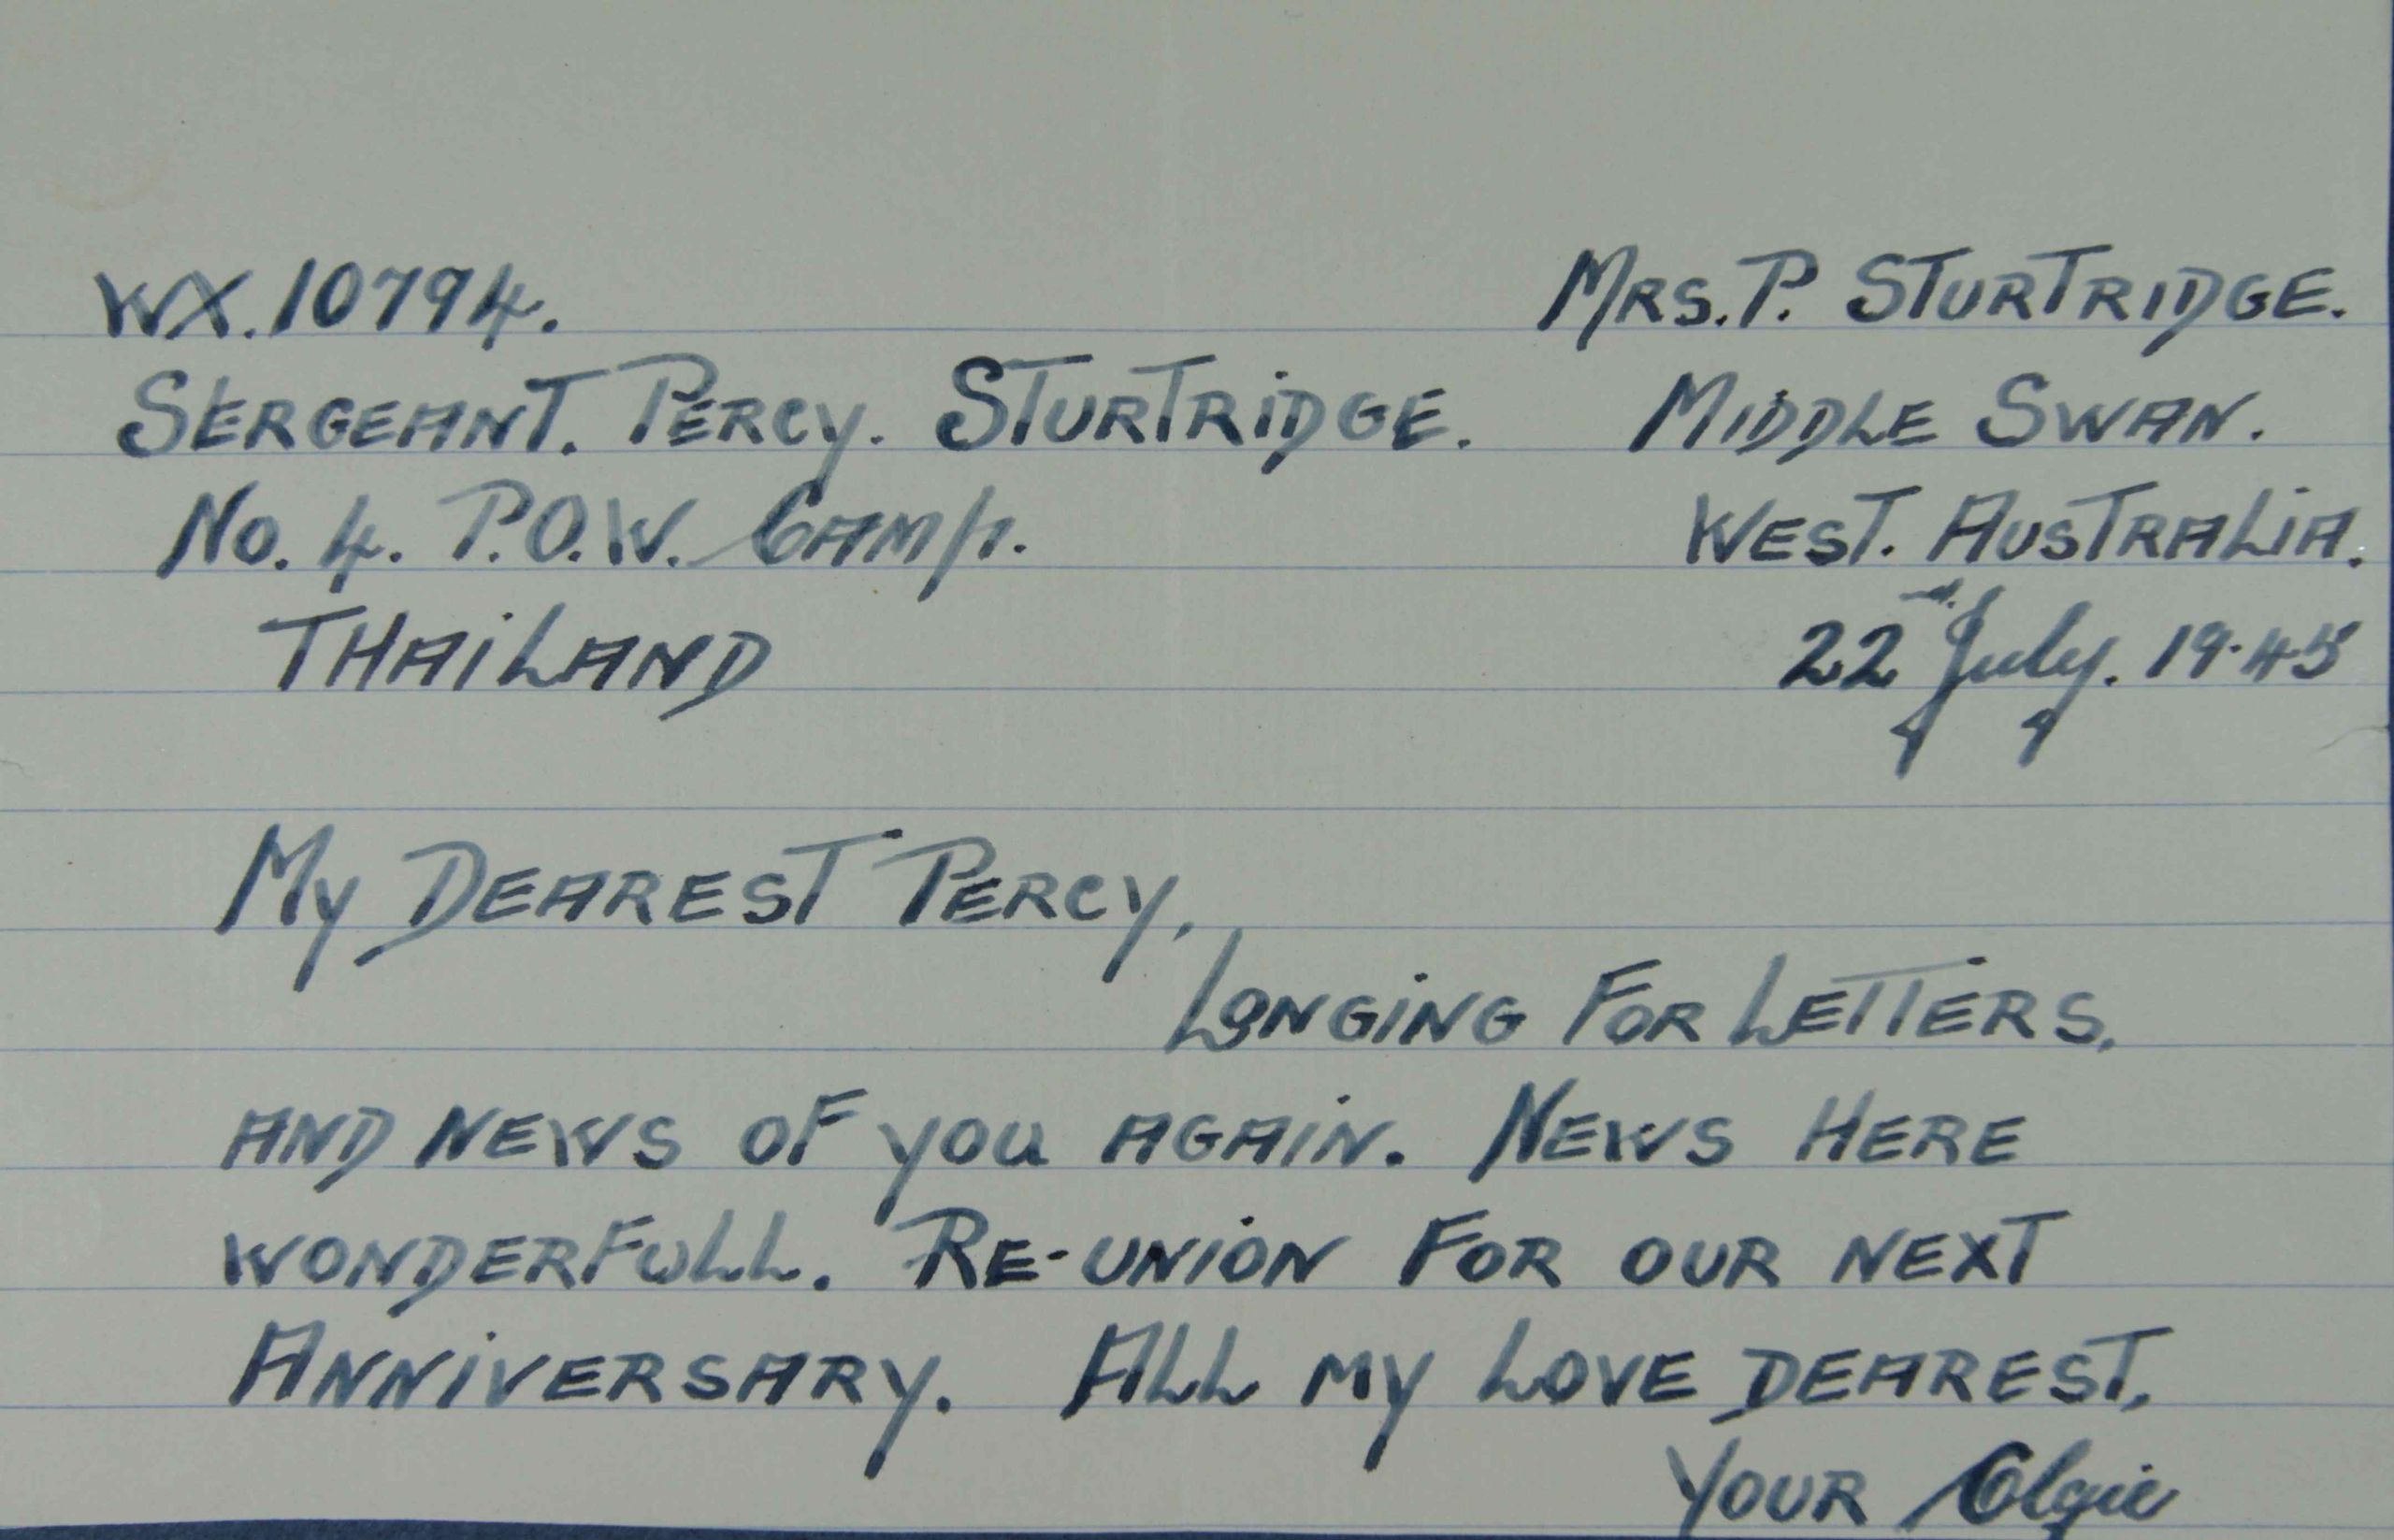 WX.10794.
SERGEANT. PERCY. STURTRIDGE.
No. 4. P.O.W. CAMP.
THAILAND
MRS. P. STURTRIDGE.
MIDDLE SWAN.
WEST. AUSTRALIA.
22nd July. 19.45
MY DEAREST PERCY,
LONGING FOR LETTERS,
AND NEWS OF YOU AGAIN. NEWS HERE
WONDERFULL. RE-UNION FOR OUR NEXT
ANNIVERSARY. ALL MY LOVE DEAREST,
YOUR Olgie